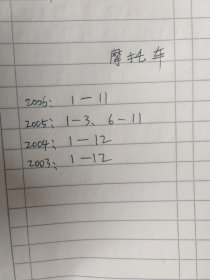 摩托车
2006: 1—11
2005: 1—3、6—11
2004: 1—12
2003: 1—12